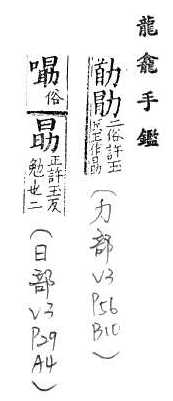 龍龕手鑑
勛勛二俗許玉反正作勗
（力部V3P56B10）
喝俗
勗正許玉反勉也二
（日部V3P29A4）